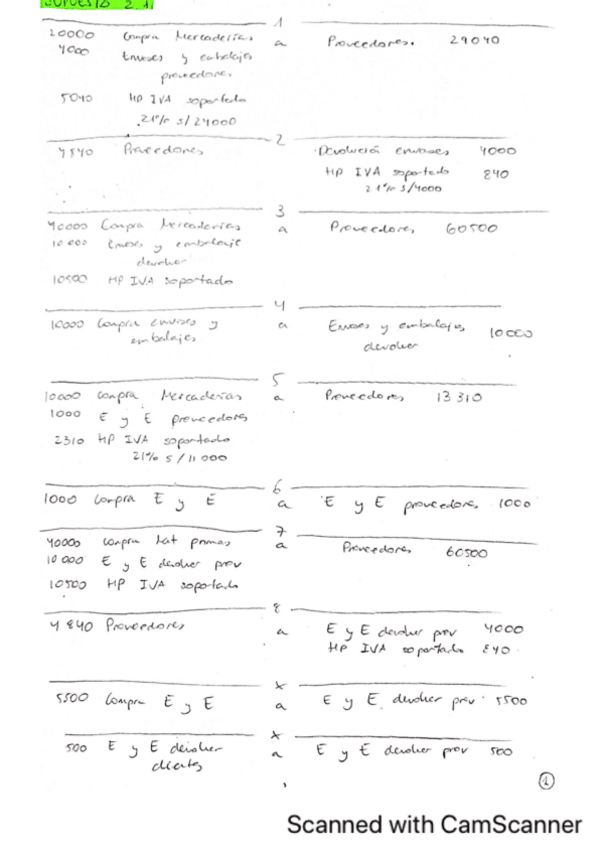 SUPUESTO 2.1.
1
20000 Compra Mercaderías a Proveedores. 29040
4000 Envases y embalajes
proveedores
5040 HP IVA soportado
21% s/24000
2
4840 Proveedores Devolución envases 4000
HP IVA soportado 840
21% s/4000
3
40000 Compra Mercaderías a Proveedores 60500
10000 Envases y embalaje
devolver
10500 HP IVA soportado
4
10000 Compra envases y a Envases y embalajes 10000
embalajes devolver
5
10000 Compra Mercaderías a Proveedores 13310
1000 E y E proveedores
2310 HP IVA soportado
21% s/11000
6
1000 Compra E y E a E y E proveedores 1000
7
40000 Compra Mat primas a Proveedores 60500
10000 E y E devolver prov
10500 HP IVA soportado
8
4840 Proveedores a E y E devolver prov 4000
HP IVA soportado 840
x
5500 Compra E y E a E y E devolver prov 5500
x
500 E y E devolver a E y E devolver prov 500
clientes
1
Scanned with CamScanner